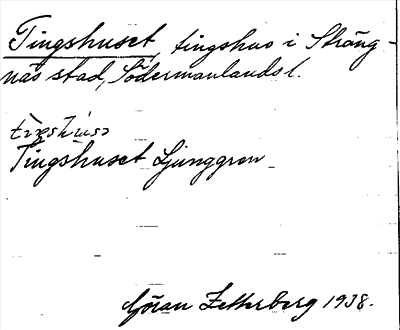 Tingshuset, tingshus i Sträng-
näs stad, Södermanlands l.
Tingshuset Ljunggren
Göran Zetterberg 1938.